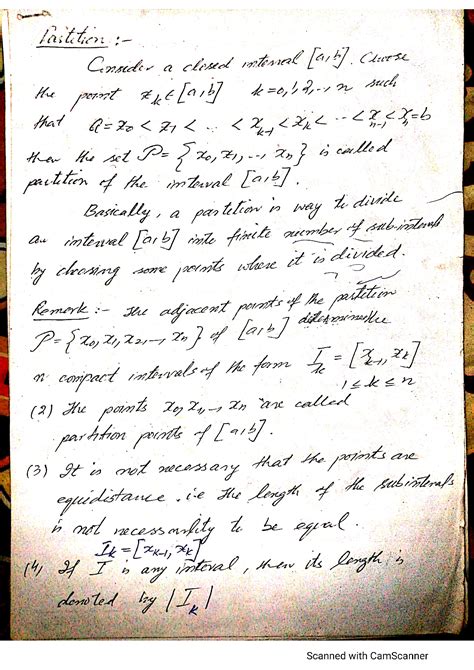 Partition :-
Consider a closed interval [a,b]. Choose
the point x_k ∈ [a,b] k=0,1,2,--, n such
that a = x_0 < x_1 < -- < x_{k-1} < x_k < -- < x_{n-1} < x_n = b
then the set P = {x_0, x_1, --, x_n} is called
partition of the interval [a,b].
Basically, a partition is way to divide
an interval [a,b] into finite number of sub-intervals
by choosing some points where it is divided.
Remark :- The adjacent points of the partition
P = {x_0, x_1, x_2, --, x_n} of [a,b] determine the
n compact intervals of the form I_k = [x_{k-1}, x_k]
1 ≤ k ≤ n
(2) The points x_0, x_1, --, x_n are called
partition points of [a,b].
(3) It is not necessary that the points are
equidistance. i.e The length of the subintervals
is not necessarily to be equal.
I_k = [x_{k-1}, x_k]
(4) If I is any interval, then its length is
denoted by |I_k|
Scanned with CamScanner